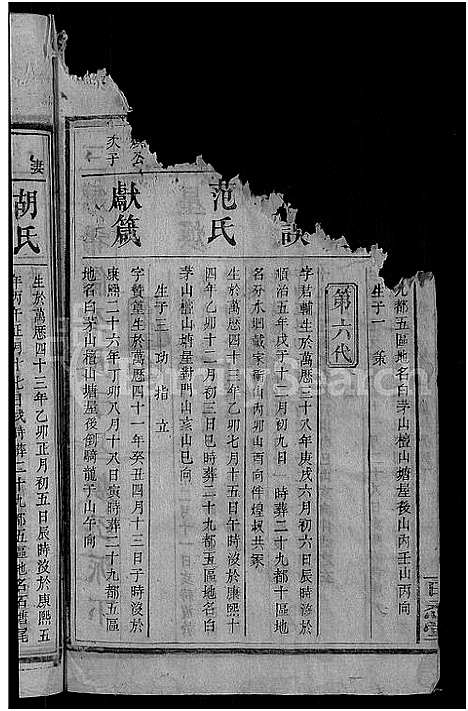 九都五區地名白茅山檀山塘屋後山內壬山丙向
生子一 策
第六代
字君輔生於萬曆三十八年庚戌六月初六日辰時沒於
順治五年戊子十月初九日 時葬二十九都十區地
山內卯山酉向伴煌叔共冢
范氏
生於萬曆四十三年乙卯七月十五日午時沒於康熙十
四年乙卯十二月初三日巳時葬二十九都五區地名白
茅山檀山塘屋對門山亥山巳向
生子三 功 指 立
獻箴
字贊皇生於萬曆四十一年癸丑四月十三日子時沒於
康熙二十六年丁卯八月十八日寅時葬二十九都五區
地名白茅山檀山塘屋後倒騎龍子山午向
次子
妻
胡氏
生於萬曆四十三年乙卯正月初五日辰時沒於康熙五
年丙午正月十七日戌時葬二十九都五區地名石